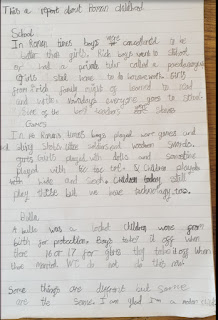 This a report about Roman childhood
School
In Roman times boys were considered to be
better than girls. Rich boys went to school
or had a private tutor called a paedagogus
girls had have to do housework. Girls
from rich family might of learned to read
and write. Nowadays everyone goes to school
of the best were slaves
Games
In Roman times boys played war games and
using sticks like soldiers and wooden swords.
girls played with dolls and sometime
played with tic tac toe. Children played
hide and seek. Children today still
play these but we have technology too.
Bulla
A bulla was a locket children wore from
birth for protection. Boys take it off when
there 16 or 17 for girls they take it off when
they married. We do not do this now.
Some things are different but some
are the same. I am glad I'm a modern child